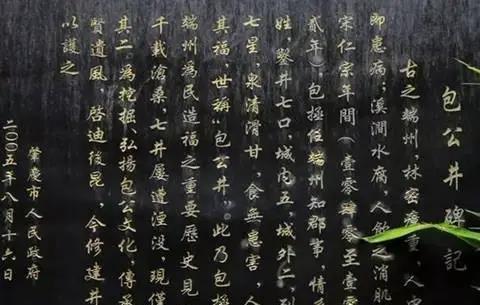 包公井碑記
古之端州，林密瘴重，人
即患病；溪澗水腐，人飲之消肌
宋仁宗年間（壹零肆零至壹零
貳年），包拯任端州知郡事，情
姓，鑿井七口，城内五，城外二，列
七星，泉清滑甘，食無患害，人
其福，世稱“包公井”。此乃包拯
端州為民造福之重要歷史見
千載滄桑，七井屢遭湮没，現僅
其二。為挖掘、弘揚包公文化，傳承
賢遺風，啓迪後昆，今修建井
以護之
肇慶市人民政府
二〇〇五年八月十六日